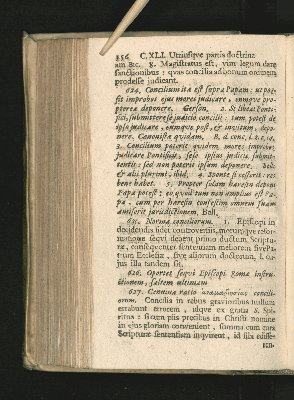 356 C. XLI. Utriusque partis doctrina
am &c. 8. Magistratus est, vim legum dare
sanctionibus: quas concilia ad bonum omnium
prodesse judicant.
624. Concilium ita est supra Papam: ut pos-
sit improbos ejus mores judicare, eumque pro-
pterea deponere. Gerson. 2. Si libeat Ponti-
fici, submittere se judicio concilii: tum potest de
ipso judicare, eumque post, & invitum, depo-
nere.
2. Concilium poterit quidem mores
judicare Pontificis, sese ipsius judicio submit-
tentis: sed non poterit ipsum deponere. Bell.
& alii plurimi, ibid. 4. Sponte si cesserit: res
bene habet. 5. Propter solam haresin deponi
Papa potest: eo quod tum non amplius est Pa-
pa, cum per haresin confestim omnem suam
amiserit jurisdictionem, Bell.
625. Norma conciliorum. 1. Episcopi in
decidendis fidei controversiis, morumque refor-
matione sequi debent primo ductum Scriptu-
ræ, consequenter sententiam meliorem five Pa-
trum Ecclesiæ, sive aliorum doctorum,
jus illa tandem sit.
626. Oportet sequi Episcopi Romæ instru-
ctionem, saltem ultimam
627. Genuina ratio concilio-
orum. Concilia in rebus gravioribus nullum
errabunt errorem, idque ex gratia S. Spi-
ritus: sicum piis precibus in Christi nomine
in ejus gloriam convenient, summa cum cura
Scripturæ sententiam inquirent, id sibi